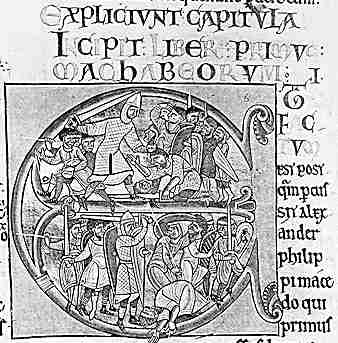 EXPLICIUNT CAPITULA
INCIPIT LIBER PRIMUS
MACHABEORUM: I.
E
T
F C
TUM
est post
qm pcus
sit alex
ander
philip
pi mace
do qui
primus